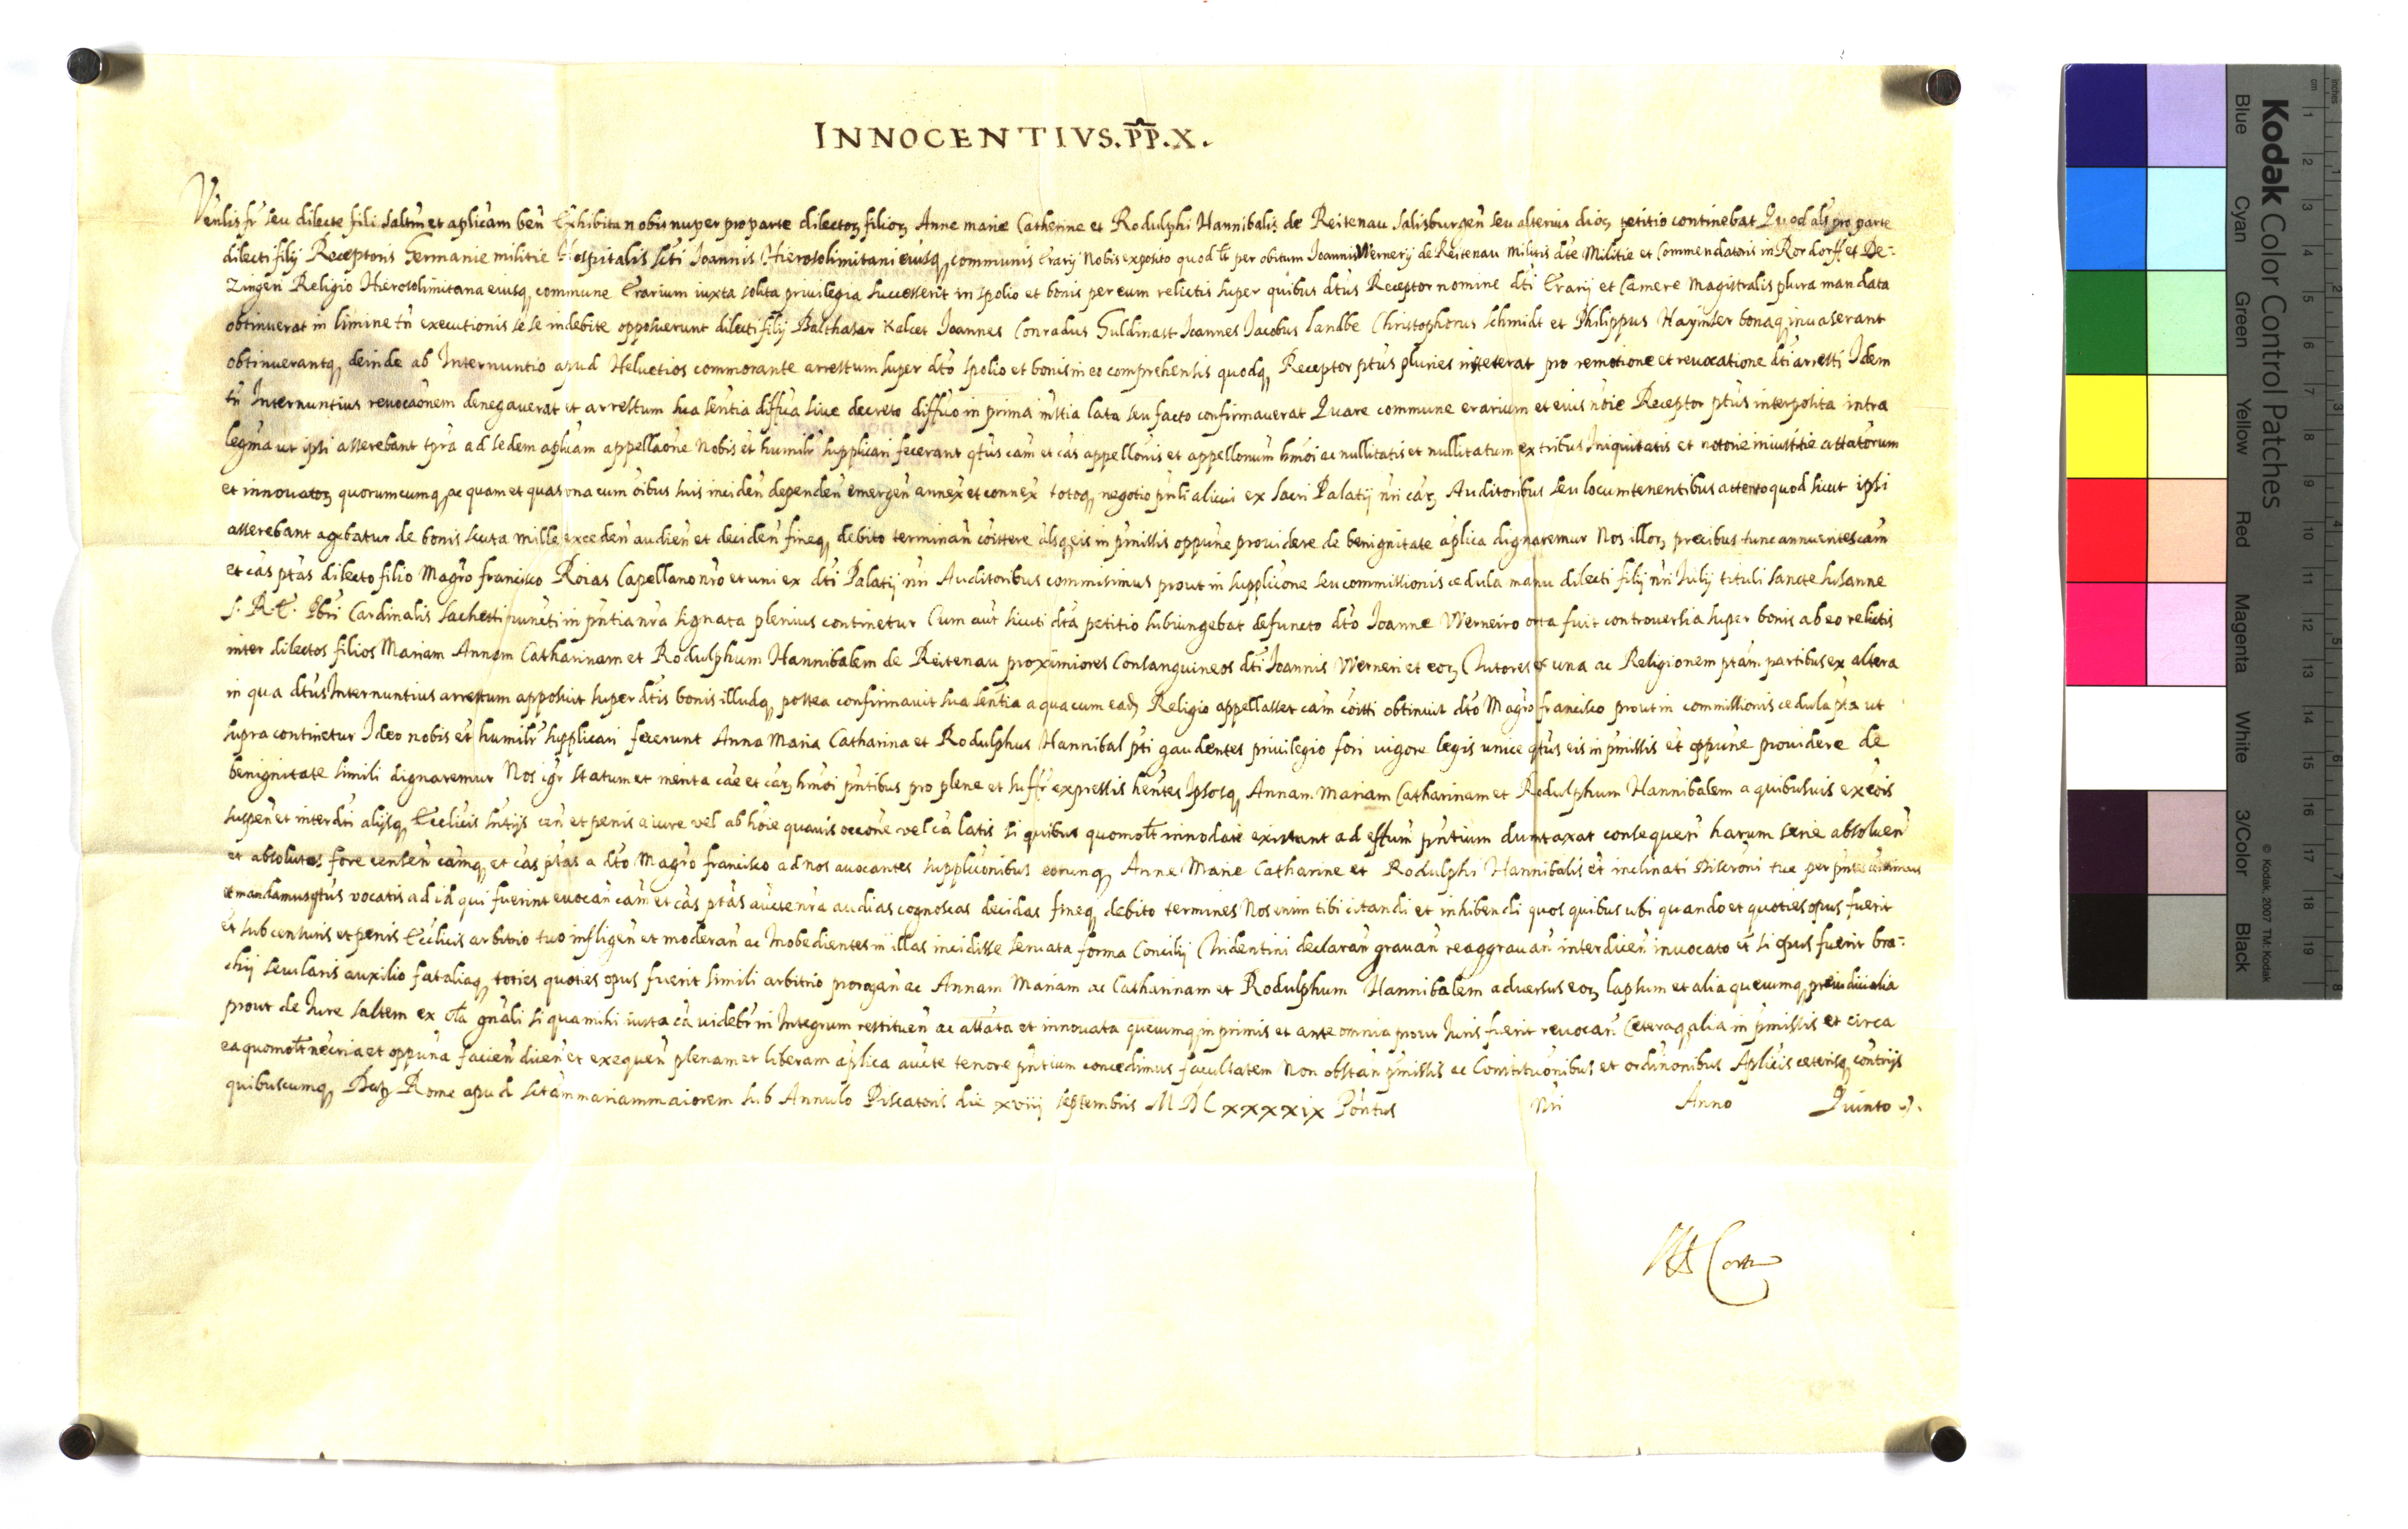 INNOCENTIVS. P̅P̅. X.
Venlis fr̃ seu dilecte fili saltm̃ et aplicam ben̄ Exhibita nobis nuper pro parte dilectoꝝ filioꝝ Anne marie Catherine et Rodulphi Hannibalis de Reitenau Salisburgen̄ seu alterius dioc̃ petitio continebat Quod als̃ pro parte
dilecti filij Receptoris Germanie militie Hospitalis Scti Joannis Hierosolimitani eiusqꝫ communis Erarij Nobis exposito quod lt̃ per obitum Joannis Wernerij de Reitenau Militis dte Militie et Commendatoris in Rordorff et De-
zingen Religio Hierosolimitana eiusqꝫ commune Erarium iuxta solita privilegia successerit in spolio et bonis per eum relictis super quibus dtus Receptor nomine dti Erarij et Camere Magistralis plura mandata
obtinuerat in limine tn̄ executionis sese indebite opposuerunt dilecti filij Balthasar Kalcet Joannes Conradus Guldinast Joannes Jacobus Landbe Christophorus Schmidt et Philippus Hayinser bonaqꝫ invaserant
obtinuerantqꝫ deinde ab Internuntio apud Helvetios commorante arrestum super dto spolio et bonis in eo comprehensis quodqꝫ Receptor ptus pluries institerat pro remotione et revocatione dti arresti Idem
tn̄ Internuntius revocãonem denegaverat et arrestum sua sentia diffva sive decreto diffvo in prima instia lata seu facto confirmaverat Quare commune erarium et eius noie Receptor ptus interposita intra
legma ut ipsi asserebant tpra ad sedem aplicam appellãone Nobis et humilr̃ supplicari fecerant qtus cam et cas appellonis et appellonum hmoi ac nullitatis et nullitatum ex tribus Iniquitatis et notorie iniustitie attatorum
et innovatoꝝ quorumcumqꝫ ac quam et quas una cum oibus suis inciden̄ dependen̄ emergen̄ annex̄ et connex̄ totoqꝫ negotio pnli alicui ex Sacri Palatij nri caꝝ Auditoribus seu locumtenentibus attento quod sicut ipsi
asserebant agebatur de bonis scuta mille exceden̄ audien̄ et deciden̄ fineqꝫ debito terminan̄ coittere alsqꝫ eis in pmissis oppune providere de benignitate aplica dignaremur Nos illoꝝ precibus tunc annuentes cam
et cas ptas dilecto filio Magro Francisco Roias Capellano nro et uni ex dti Palatij nri Auditoribus commisimus prout in supplicone seu commissionis cedula manu dilecti filij nri Julij tituli Sancte Susanne
S. R. E. Pbri Cardinalis Sachetti nuncti in pntia nra signata plenius continetur Cum aut sicuti dta petitio subiungebat defuncto dto Joanne Werneiro orta fuit controversia super bonis ab eo relictis
inter dilectos filios Mariam Annam Catharinam et Rodulphum Hannibalem de Reitenau proximiores Consanguineos dti Joannis Werneri et eoꝝ Tutores ex una ac Religionem ptam partibus ex altera
in qua dtus Internuntius arrestum apposuit super dtis bonis illudqꝫ postea confirmavit sua sentia a qua cum eadꝫ Religio appellasset cam coitti obtinuit dto Magro Francisco prout in commissionis cedula pta ut
supra continetur Ideo nobis et humilr̃ supplicari fecerunt Anna Maria Catharina et Rodulphus Hannibal pti gaudentes privilegio fori vigore legis unice qtus eis in pmissis et oppune providere de
benignitate simili dignaremur Nos igr statum et merita cae et caꝝ hmoi pntibus pro plene et suffr expressis hentes Ipsosqꝫ Annam Mariam Catharinam et Rodulphum Hannibalem a quibusuis excois
suspen̄ et interdti alijsqꝫ Ecclicis sntijs cen̄ et penis a iure vel ab hoie quavis occone vel ca latis si quibus quomolt innodate existant ad effum pntium dumtaxat consequen̄ harum serie absolven̄
et absolutos fore censen̄ camqꝫ et cas ptas a dto Magro Francisco ad nos avocantes supplicionibus eorumqꝫ Anne Marie Catharine et Rodulphi Hannibalis et inclinati Discroni tue per pntes
et mandamus qtus vocatis ad id qui fuerint evocan̄ cam et cas ptas aucte nra audias cognoscas decidas fineqꝫ debito termines Nos enim tibi citandi et inhibendi quos quibus ubi quando et quoties opus fuerit
et sub censuris et penis Ecclicis arbitrio tuo infligen̄ et moderan̄ ac Inobedientes in illas incidisse servata forma Concilij Tridentini declaran̄ gravan̄ reaggravan̄ interdicen̄ invocato et si opus fuerit bra-
chij secularis auxilio fataliaqꝫ toties quoties opus fuerit simili arbitrio prorogan̄ ac Annam Mariam ac Catharinam et Rodulphum Hannibalem adversus eoꝝ lapsum et alia quecumqꝫ preiudicialia
prout de Jure saltem ex cla gnali si qua mihi iusta ca videbr in Integrum restituen̄ ac attata et innovata quecumqꝫ in primis et ante omnia prout Juris fuerit revocan̄ Ceteraqꝫ alia in pmissis et circa
ea quomolt necria et oppuna facien̄ dicen̄ et exequen̄ plenam et liberam aplica aucte tenore pntium concedimus facultatem Non obstan̄ pmissis ac Constitutionibus et ordinonibus Aplicis ceterisqꝫ contrijs
quibuscumqꝫ Datꝫ Rome apud Sctam mariam maiorem sub Annulo Piscatoris die xviij septembris MDCxxxxix Pontus nri Anno Quinto